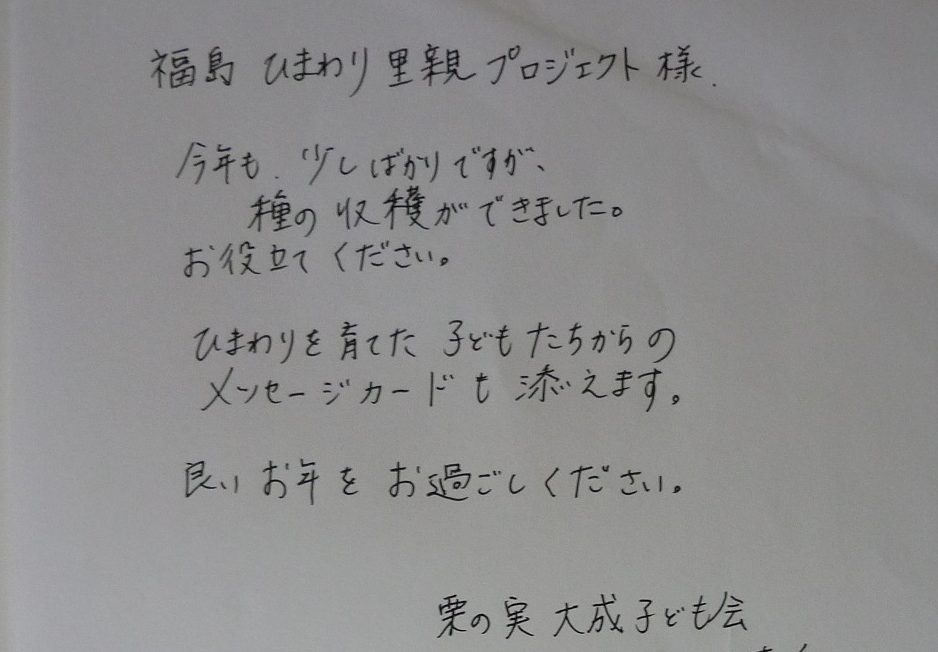 福島 ひまわり里親プロジェクト様.
今年も、少しばかりですが、
種の収穫ができました。
お役立てください。
ひまわりを育てた 子どもたちからの
メッセージカードも 添えます。
良いお年を お過ごしください。
栗の実 大成子ども会